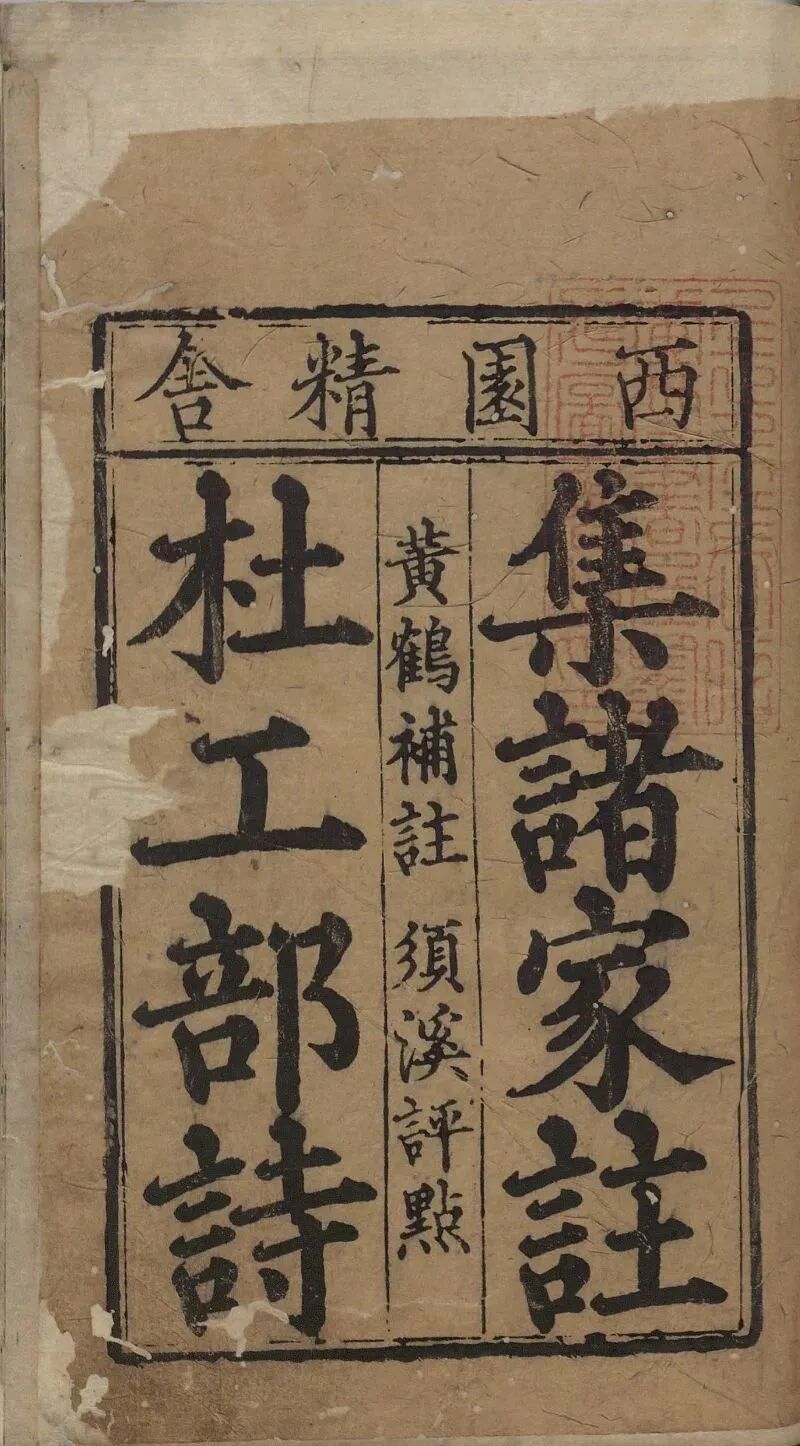 西園精舎
集諸家註
黃鶴補註 須溪評點
杜工部詩